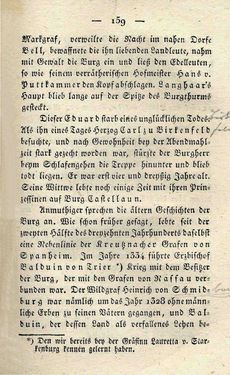 — 159 —
Markgraf, verweilte die Nacht im nahen Dorfe
Bell, bewaffnete die ihn liebenden Landleute, nahm
mit Gewalt die Burg ein und ließ den Edelleuten,
so wie seinem verrätherischen Hofmeister Hans v.
Puttkammer den Kopf abschlagen. Langhaar's
Haupt blieb lange auf der Spitze des Burgthurms
gesteckt.
Dieser Eduard starb eines unglücklichen Todes.
Als ihn eines Tages Herzog Carl zu Birkenfeld
besuchte, und nach Gewohnheit bey der Abendmahl-
zeit stark gezecht worden war, stürzte der Burgherr
beym Schlafengehen die Treppe hinunter und blieb
todt liegen. Er war ein und dreyßig Jahre alt.
Seine Wittwe lebte noch einige Zeit mit ihren Prin-
zessinnen auf Burg Castellaun.
Anmuthiger sprechen die ältern Geschichten der
Burg an. Wie schon früher gesagt, lebte seit der
zweyten Hälfte des dreyzehnten Jahrhunderts daselbst
eine Nebenlinie der Kreutznacher Grafen von
Spanheim. Im Jahre 1334 führte Erzbischof
Balduin von Trier *) Krieg mit dem Besitzer
der Burg, der mit den Grafen von Nassau ver-
bunden war. Der Wildgraf Heinrich von Schmid-
burg war nämlich um das Jahr 1328 ohnemänn-
liche Erben zu seinen Vätern gegangen, und Bal-
duin, der dessen Land als verfallenes Lehen be-
*) Den wir bereits bey der Gräfinn Lauretta v. Star-
kenburg kennen gelernt haben.